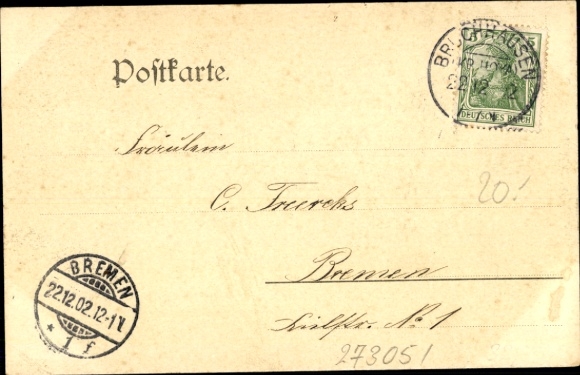 Postkarte.
BRUCHHAUSEN
22.12
5
DEUTSCHES REICH
Fräulein
C. Freerks
20.-
Bremen
No 1
BREMEN
22.12.02.12-1N
* 1 f
273051